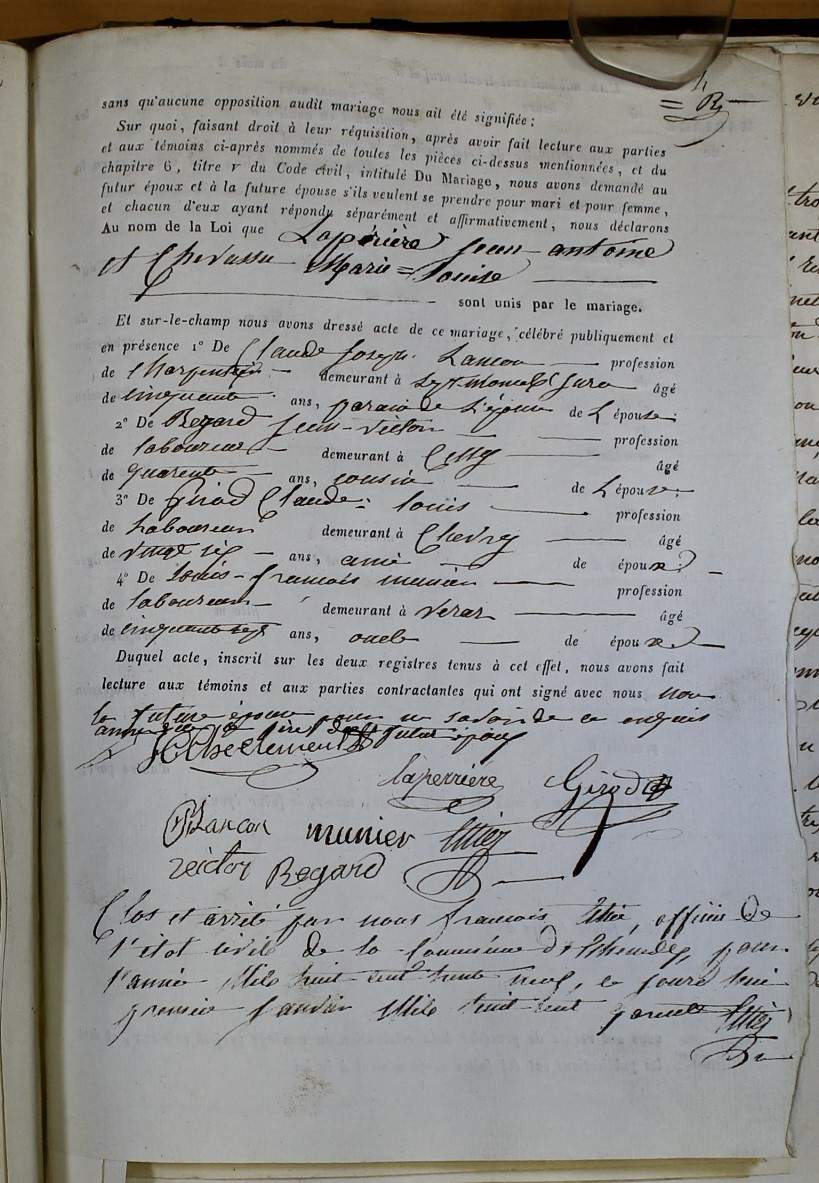 sans qu'aucune opposition audit mariage nous ait été signifiée;
Sur quoi, faisant droit à leur réquisition, après avoir fait lecture aux parties
et aux témoins ci-après nommés de toutes les pièces ci-dessus mentionnées, et du
chapitre 6, titre v du Code civil, intitulé Du Mariage, nous avons demandé au
futur époux et à la future épouse s'ils veulent se prendre pour mari et pour femme,
et chacun d'eux ayant répondu séparément et affirmativement, nous déclarons
Au nom de la Loi que Lapérière jean-antoine
et Chevassu Marie=Louise
sont unis par le mariage.
Et sur-le-champ nous avons dressé acte de ce mariage, célébré publiquement et
en présence 1° De Claude Joseph Lancon profession
de Charpentier demeurant à Septmoncel Jura âgé
de cinquante ans, de l'épouse:
2° De Regard jean-victor profession
de laboureur demeurant à Cessy âgé
de quarente ans, cousin de l'épouse;
3° De Girod Claude=louis profession
de laboureur demeurant à Chevry âgé
de vingt six ans, ami de époux
4° De Louis-francois munier profession
de laboureur demeurant à Veraz âgé
de ans, oncle de époux
Duquel acte, inscrit sur les deux registres tenus à cet effet, nous avons fait
lecture aux témoins et aux parties contractantes qui ont signé avec nous non
la future épouse pour ne savoir de ce enquis
laperrière Girod
Lancon munier
victor Regard
Clos et arrêté par nous francois officier de
l'état civil de la Commune d' pour
l'année Mile huit cent trente neuf, ce jourd'hui
premier janvier Mile huit cent